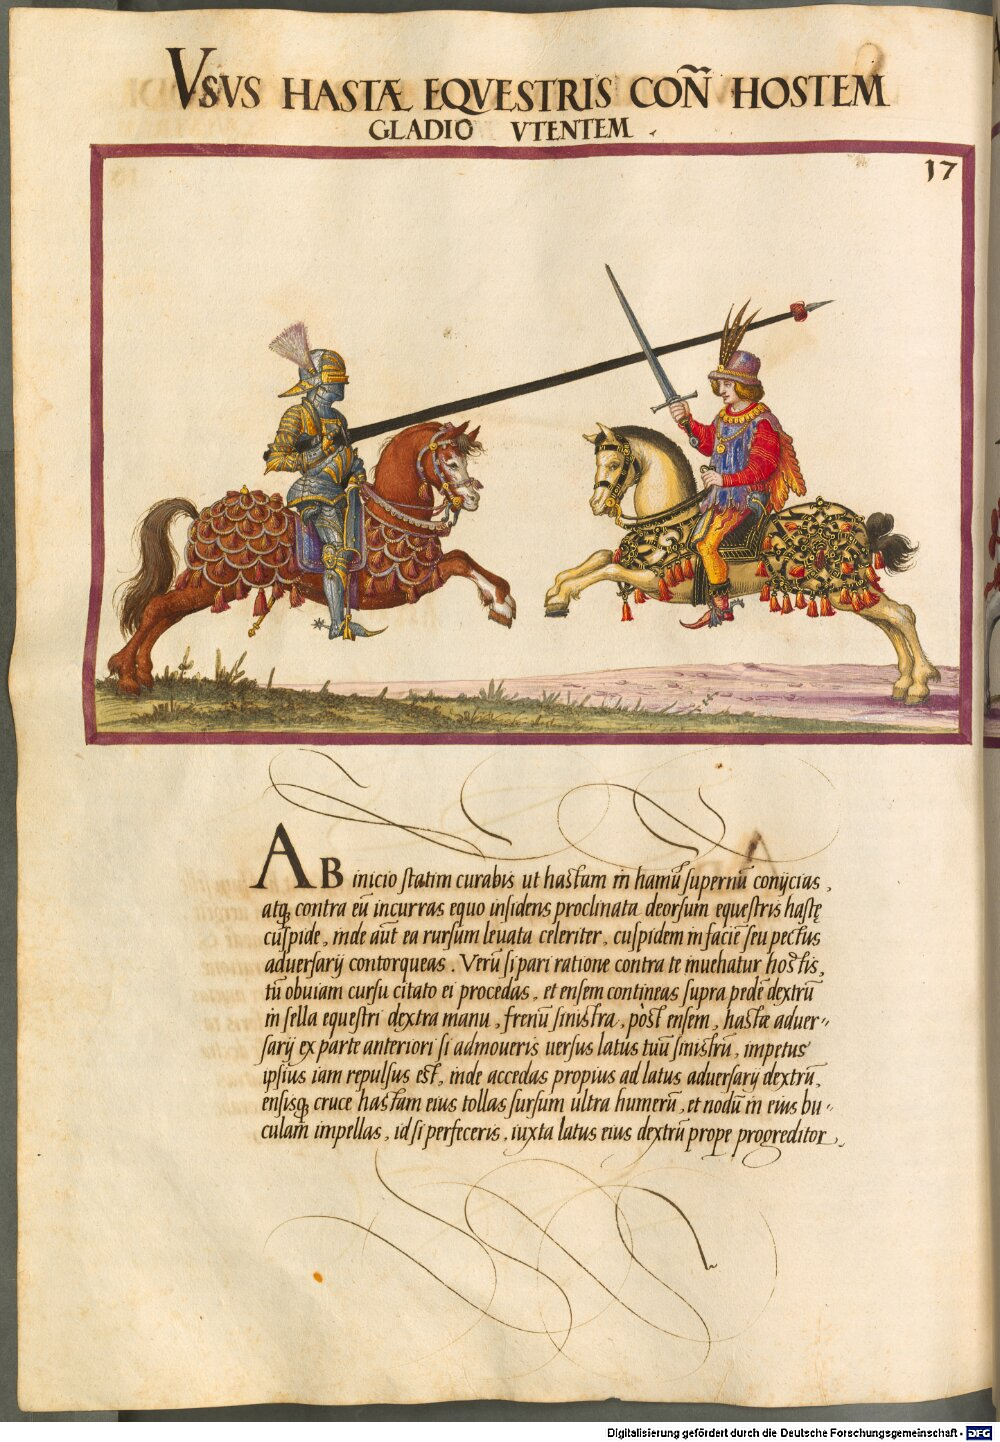 VSVS HASTÆ EQVESTRIS COÑ HOSTEM
GLADIO VTENTEM .
17
AB inicio statim curabis ut hastam in hamũ supernũ conijcias,
atq; contra eũ incurras equo insidens proclinata deorsum equestris hastę
cuspide, inde aũt ea rursum leuata celeriter, cuspidem in faciẽ seu pectus
aduersarij contorqueas. Verũ si pari ratione contra te inuehatur hostis,
tũ obuiam cursu citato ei procedas, et ensem contineas supra pedẽ dextrũ
in sella equestri dextra manu, frenũ sinistra, pòst ensem, hastæ aduer-
sarij ex parte anteriori si admoueris uersus latus tuũ sinistrũ, impetus
ipsius iam repulsus est, inde accedas propius ad latus aduersarij dextrũ,
ensisq; cruce hastam eius tollas sursum ultra humerũ, et nodũ in eius bu-
culam impellas, id si perfeceris, iuxta latus eius dextrũ prope progreditor.
Digitalisierung gefördert durch die Deutsche Forschungsgemeinschaft - DFG